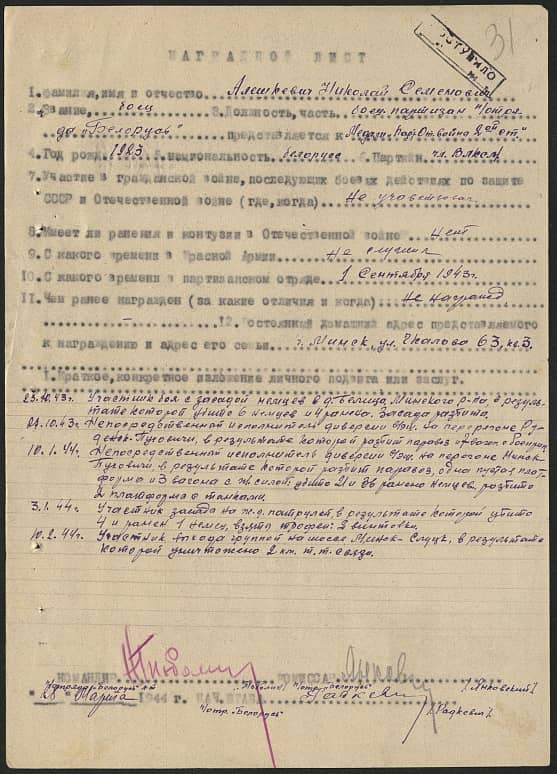 31
ПОСТУПИЛО
НАГРАДНОЙ ЛИСТ
1. Фамилия, имя и отчество Алешкевич Николай Семенович
2. Звание, боец 3. Должность, часть. боец партизан "отря-
да "Белорусь" представляется к Медали "Парт. От. войны 2ой ст."
4. Год рожд. 1923 5. Национальность. белорус 6. Партийн. чл. ВЛКСМ
7. Участие в гражданской войне, последующих боевых действиях по защите
СССР и Отечественной войне (где, когда) Не участвовал
8. Имеет ли ранения и контузии в Отечественной войне Нет
9. С какого времени в Красной Армии Не служил
10. С какого времени в партизанском отряде. 1 Сентября 1943г.
11. Чем ранее награжден (за какие отличия и когда) Не награжд
- 12. Постоянный домашний адрес представляемого
к награждению и адрес его семьи г. Минск, ул. Чкалова 63, кв. 3.
1. Краткое, конкретное изложение личного подвига или заслуг.
23.10.43г. Участник боя с засадой немцев в д. Минского р-на, в резуль-
тате которой убито 6 немцев и 4 ранено. Засада разбита.
24.10.43г. Непосредственный исполнитель диверсии на перегоне Ру-
денск-Пуховичи, в результате которой разбит паровоз
10.1.44г. Непосредственный исполнитель диверсии на перегоне Минск-
Пуховичи в результате которой разбит паровоз, одна пустая плат-
форма и 3 вагона с ж. силой убито 21 и 28 ранено немцев, разбито
2 платформа с танками.
3.1.44г. Участник засада на ж.д. патрулей, в результате которой убито
4 и ранен 1 немец, взято трофей: 3 винтовки.
10.2.44г. Участник выхода группой на шоссе Минск-Слуцк, в результате
которой уничтожено 2 км. т.т. связи.
КОМАНДИР КОМИССАР
"Беларусь" "отр. Беларусь" /Янковский/
"28" Марта 1944 г. НАЧ. ШТАБА
"отр. "Белорусь" /Радкевич/